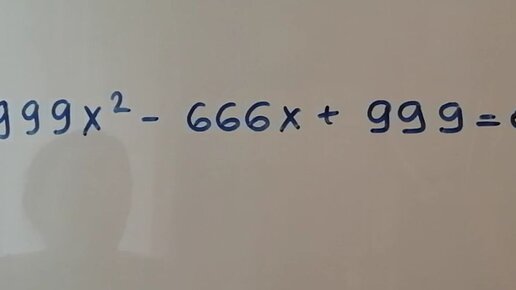 999x² - 666x + 999 =